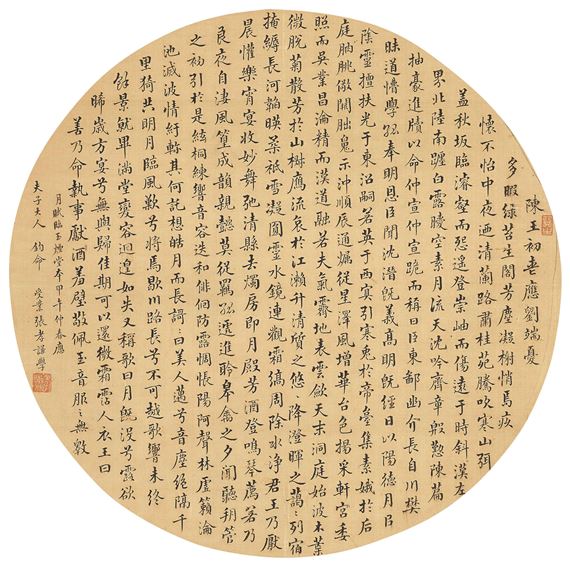 陳王初喪應劉端憂
多暇綠苔生閣芳塵凝榭悄焉疚
懷不怡中夜迺清蘭路肅桂苑騰吹寒山弭
蓋秋坂臨濬壑而怨遥登崇岫而傷遠于時斜漢左
界北陸南躔白露曖空素月流天沈吟齊章殷懃陳篇
抽豪進牘以命仲宣仲宣跪而稱曰臣東鄙幽介長自川樊
昧道懵學孤奉明恩臣聞沈潛旣義高明旣經日以陽德月以
陰靈擅扶光于東沼嗣若英于西冥引寒兔於帝臺集素娥於后
庭朒朓儆闕朏魄示沖順辰通燭從星澤風增華台色揚采軒宮委
照而吳業昌淪精而漢道融若夫氣霽地表雲斂天末洞庭始波木葉
微脫菊散芳於山椒鴈流哀於江瀨升清質之悠〻降澄暉之藹〻列宿
掩縟長河韜暎柔祇雪凝圓靈水鏡連觀霜縞周除冰淨君王乃厭
晨懽樂宵宴收妙舞弛清縣去燭房即月殿芳酒登鳴琴薦若乃
良夜自淒風篁成韻親懿莫從羈孤遞進聆皋禽之夕聞聽朔管
之秋引於是絃桐練響音容选和徘徊防露惆悵陽阿聲林虛籟淪
池滅波情紆軫其何託想皓月而長謌曰美人邁兮音塵絕隔千
里猗共明月臨風歎兮將焉歇川路長兮不可越歌響未終
餘景就畢滿堂變容迴遑如失又稱歌曰月旣沒兮露欲
晞歲方宴兮無與歸佳期可以還微霜霑人衣王曰
善乃命執事獻酒羞璧敬佩玉音服之無斁
月賦臨玉煙堂本甲午仲春應
夫子大人鈞命 受業張孝謹學